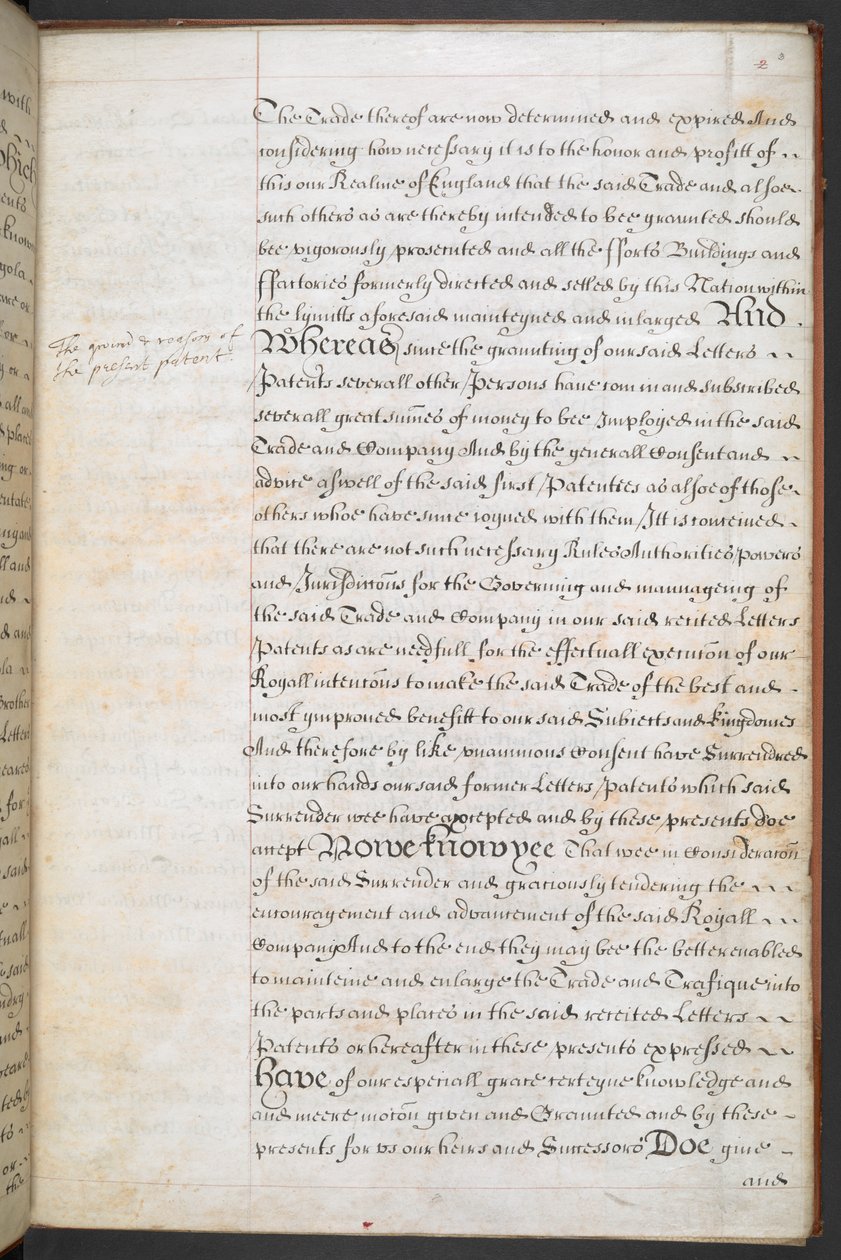 2
The Trade thereof are now determined and expired And
considering how necessary it is to the honor and profitt of
this our Realme of England that the said Trade and alsoe
such others as are thereby intended to bee graunted should
bee vigorously prosecuted and all the fforts Buildings and
ffactories formerly directed and setled by this Nation within
the lymitts aforesaid mainteyned and inlarged And
The ground & reason of
the present patent:
Whereas since the graunting of our said Letters
Patents severall other Persons have com in and subscribed
severall great sumes of money to bee Imployed in the said
Trade and Company And by the generall Consent and
advice aswell of the said first Patentees as alsoe of those
others whoe have since ioyned with them Itt is conceived
that there are not such necessary Rules Authorities powers
and Jurisdiccons for the Governing and mannageing of
the said Trade and Company in our said recited Letters
Patents as are needfull for the effectuall execucon of our
Royall intencons to make the said Trade of the best and
most ymproved benefitt to our said Subiects and kingdomes
And therefore by like vnanimous Consent have Surrendred
into our hands our said former Letters Patents which said
Surrender wee have accepted and by these presents doe
accept Nowe know yee That wee in Consideracon
of the said Surrender and graciously tendering the
encouragement and advancement of the said Royall
Company And to the end they may bee the better enabled
to mainteine and enlarge the Trade and Trafique into
the parts and places in the said receited Letters
Patents or hereafter in these presents expressed
have of our especiall grace certeyne knowledge and
and meere mocon given and Graunted and by these
presents for vs our heirs and Successors Doe give
and